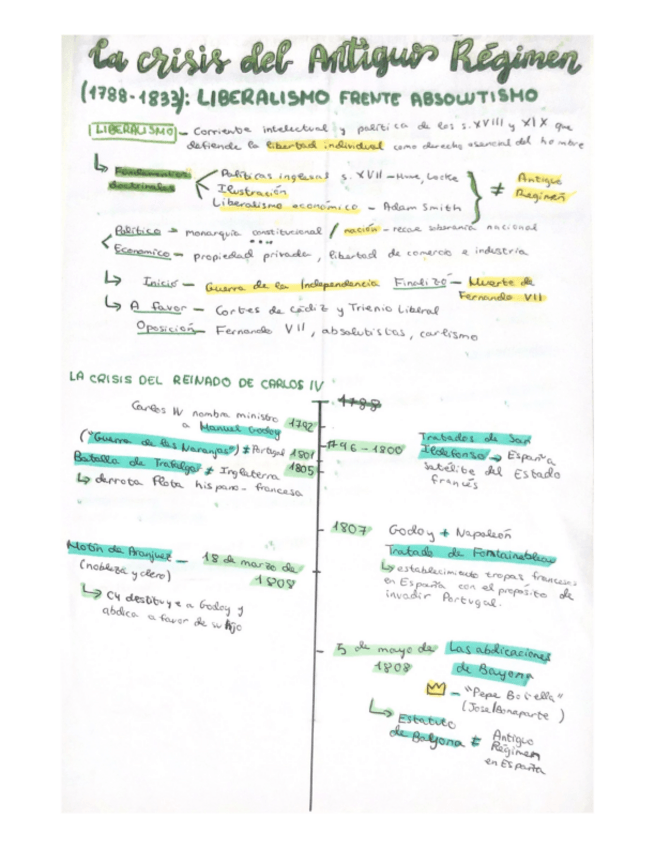 La crisis del Antiguo Régimen
(1788-1833): LIBERALISMO FRENTE ABSOLUTISMO
LIBERALISMO - Corriente intelectual y política de los s. XVIII y XIX que
defiende la libertad individual como derecho esencial del hombre
↳ Fundamentos
doctrinales
Políticas inglesas s. XVII - Hume, Locke
Ilustración
Liberalismo económico - Adam Smith
≠ Antiguo
Régimen
Político → monarquía constitucional / nación - recae soberanía nacional
Economico - propiedad privada, libertad de comercio e industria
↳ Inicio - Guerra de la Independencia Finalizó - Muerte de
Fernando VII
↳ A favor - Cortes de Cádiz y Trienio Liberal
Oposición - Fernando VII, absolutistas, carlismo
LA CRISIS DEL REINADO DE CARLOS IV
1788
Carlos IV nombra ministro
a Manuel Godoy 1792
("Guerra de las Naranjas") ≠ Portugal 1801
Batalla de Trafalgar ≠ Inglaterra 1805
↳ derrota flota hispano-francesa
1796-1800
Tratados de San
Ildefonso → España
satélite del Estado
francés
1807
Godoy + Napoleón
Tratado de Fontainebleau
↳ establecimiento tropas francesas
en España con el propósito de
invadir Portugal.
Motín de Aranjuez - 18 de marzo de
(nobleza y clero) 1808
↳ C4 destituye a Godoy y
abdica a favor de su hijo
5 de mayo de 1808
Las abdicaciones
de Bayona
- "Pepe Botella"
(José Bonaparte)
↳ Estatuto
de Bayona ≠ Antiguo
Régimen
en España